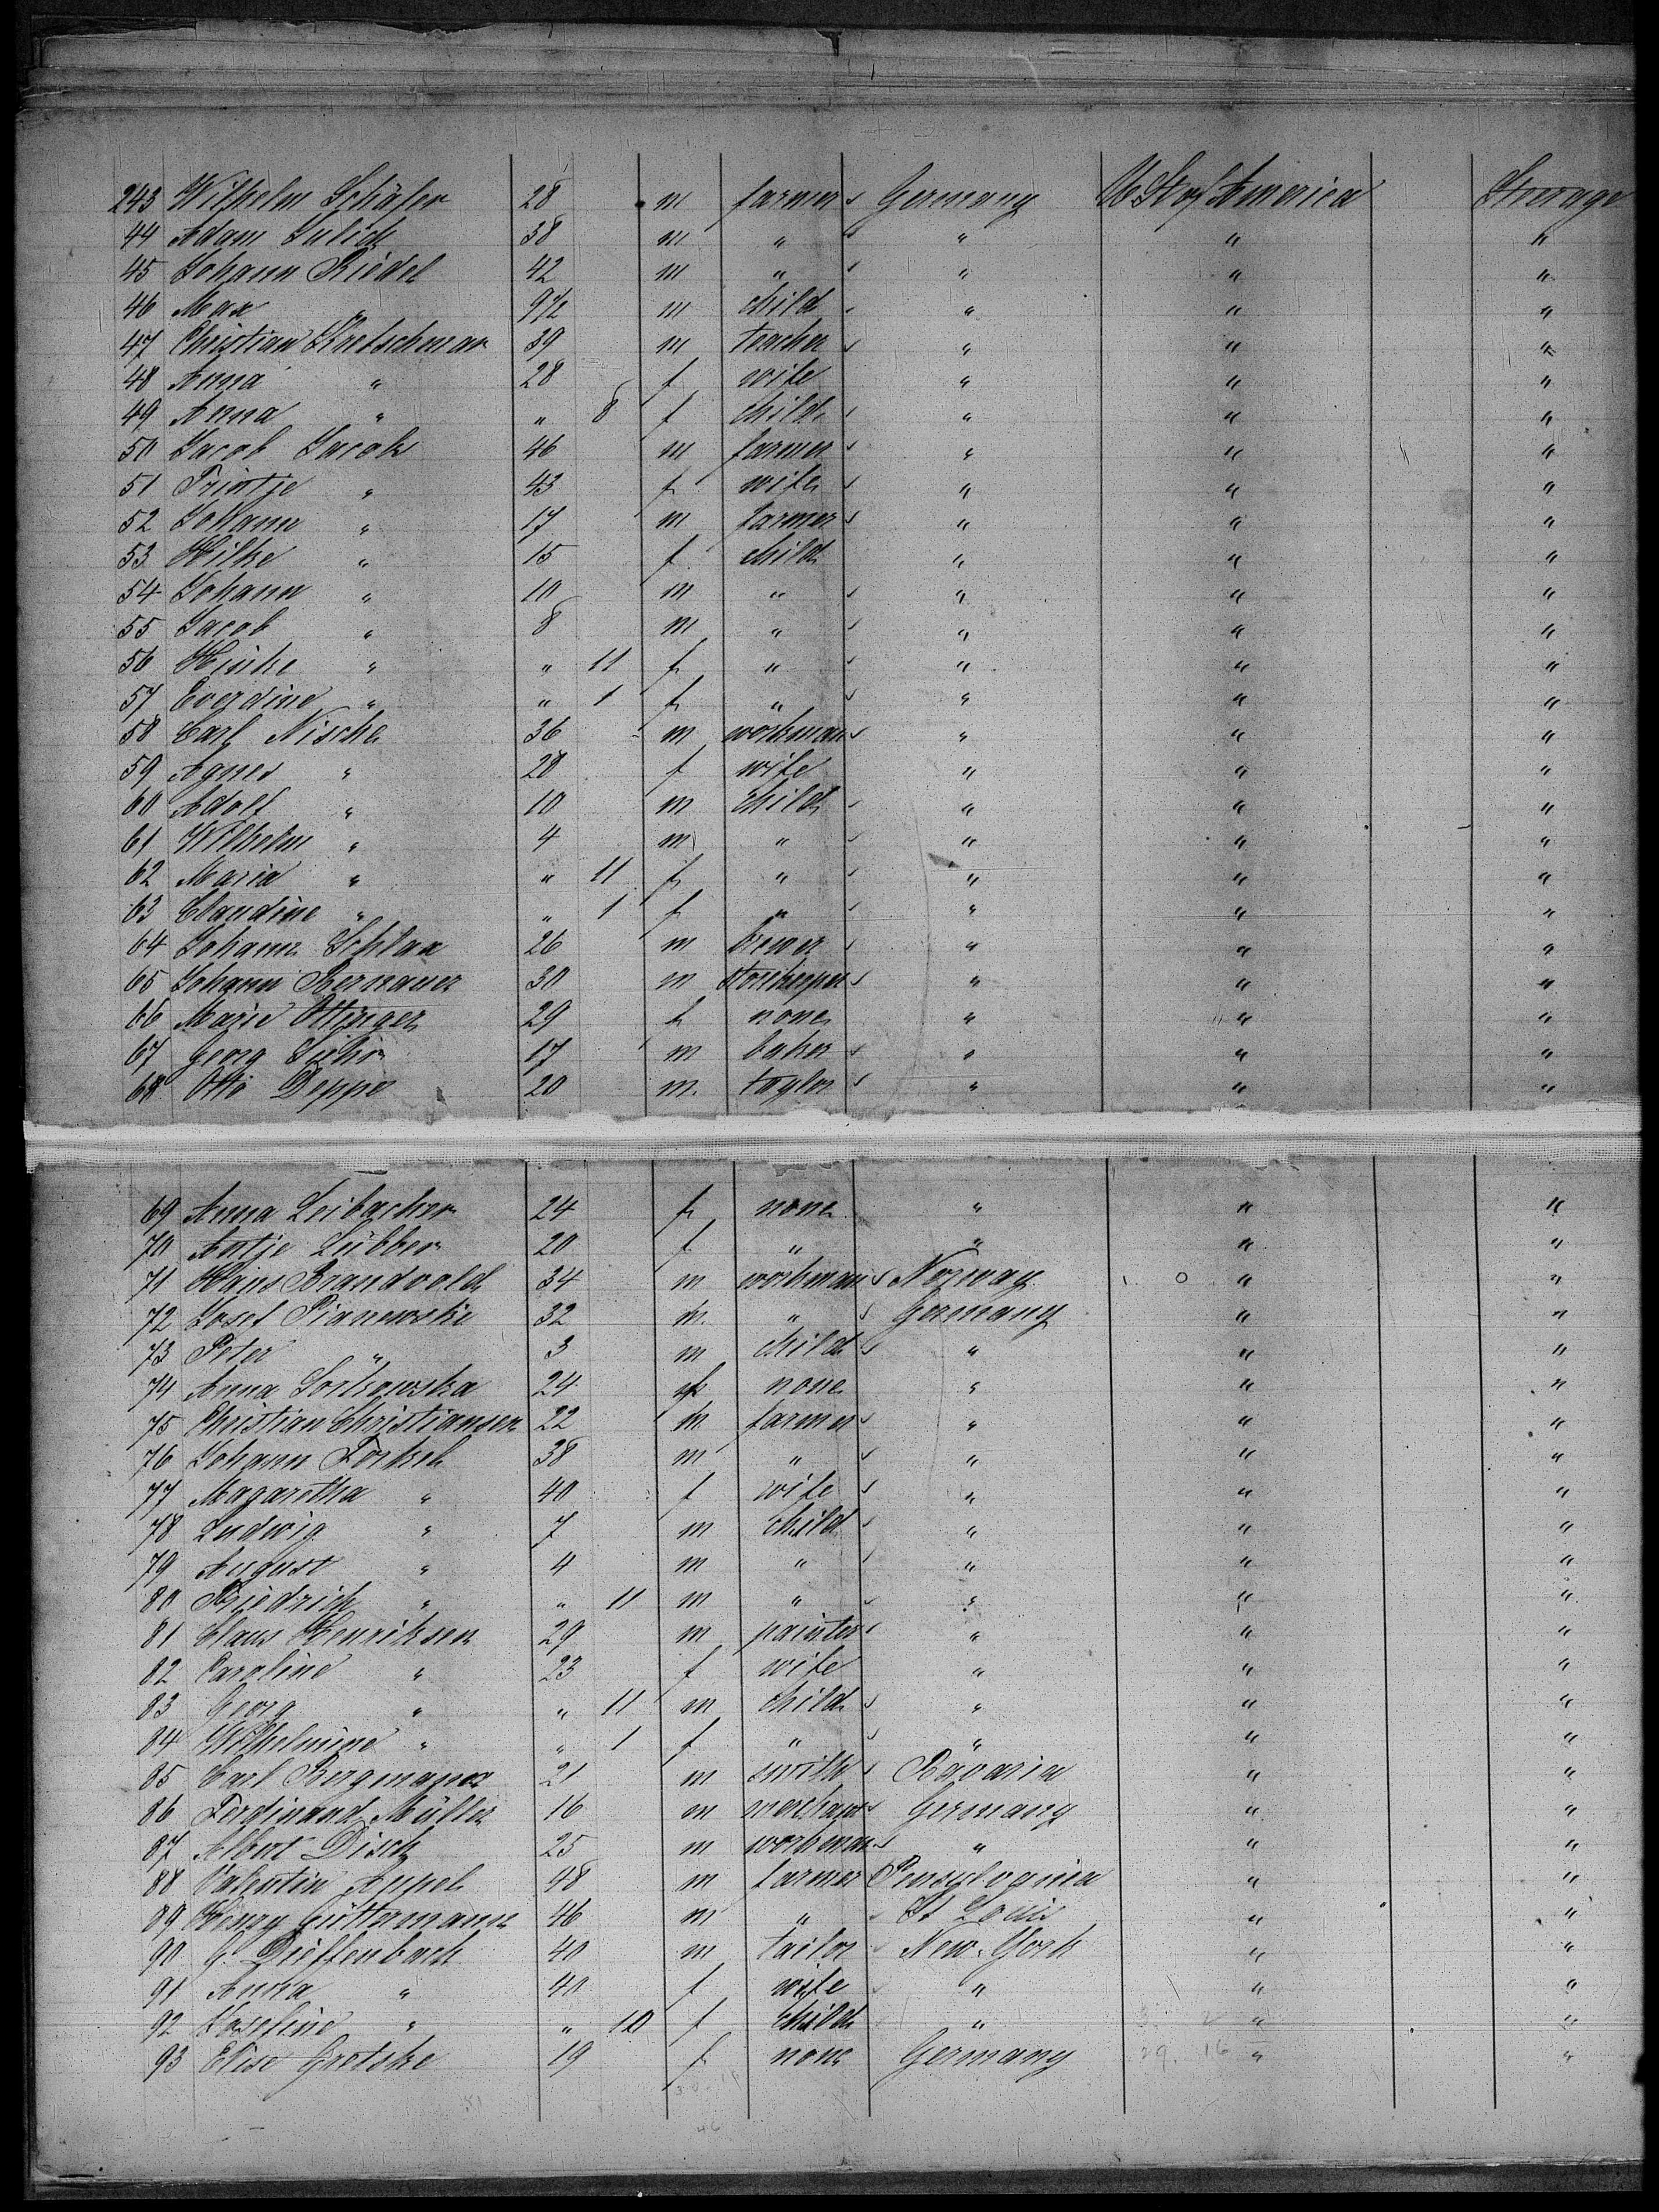 243 Wilhelm Schäfer 28 m farmer Germany U St of America Steerage
44 Adam Julich 38 m " " " "
45 Johann Riedel 42 m " " " "
46 Max " 9½ m child " " "
47 Christian Kretschmar 39 m teacher " " "
48 Anna " 28 f wife " " "
49 Anna " " 8 f child " " "
50 Jacob Jacobs 46 m farmer " " "
51 Trintje " 43 f wife " " "
52 Johann " 17 m farmer " " "
53 Hilke " 15 f child " " "
54 Johann " 10 m " " " "
55 Jacob " 8 m " " " "
56 Hinke " " 11 f " " " "
57 Everdine " " 1 f " " " "
58 Carl Nische 36 m workman " " "
59 Agnes " 28 f wife " " "
60 Adolf " 10 m child " " "
61 Wilhelm " 4 m " " " "
62 Maria " " 11 f " " " "
63 Claudine " " 1 f " " " "
64 Johann Schlax 26 m brewer " " "
65 Johann Bernauer 30 m storekeeper " " "
66 Marie Ottinger 29 f none " " "
67 Georg 17 m baker " " "
68 Otto Deppe 20 m. taylor " " "
69 Anna Leibacher 24 f none " " "
70 Antje Lübber 20 f " " " "
71 Hans Brandvold 34 m workman Norway " "
72 Josef Pianewski 32 m. " Germany " "
73 Peter " 3 m child " " "
74 Anna 24 f none " " "
75 Christian Christiansen 22 m farmer " " "
76 Johann Forkel 38 m " " " "
77 Magaretha " 40 f wife " " "
78 Ludwig " 7 m child " " "
79 August " 4 m " " " "
80 Friedrich " " 11 m " " " "
81 Claus Henriksen 29 m painter " " "
82 Caroline " 23 f wife " " "
83 Georg " " 11 m child " " "
84 Wilhelmine " " 1 f " " " "
85 Carl Bergmann 21 m smith Bavaria " "
86 Ferdinand Müller 16 m merchant Germany " "
87 Albert Disch 25 m workman " " "
88 Valentin Appel 48 m farmer Pensylvania " "
89 Henry Güttermann 46 m " St Louis " "
90 G. Dieffenbach 40 m tailor New-York " "
91 Anna " 40 f wife " " "
92 Josefine " " 10 f child " " "
93 Elise Gretske 19 f none Germany " "